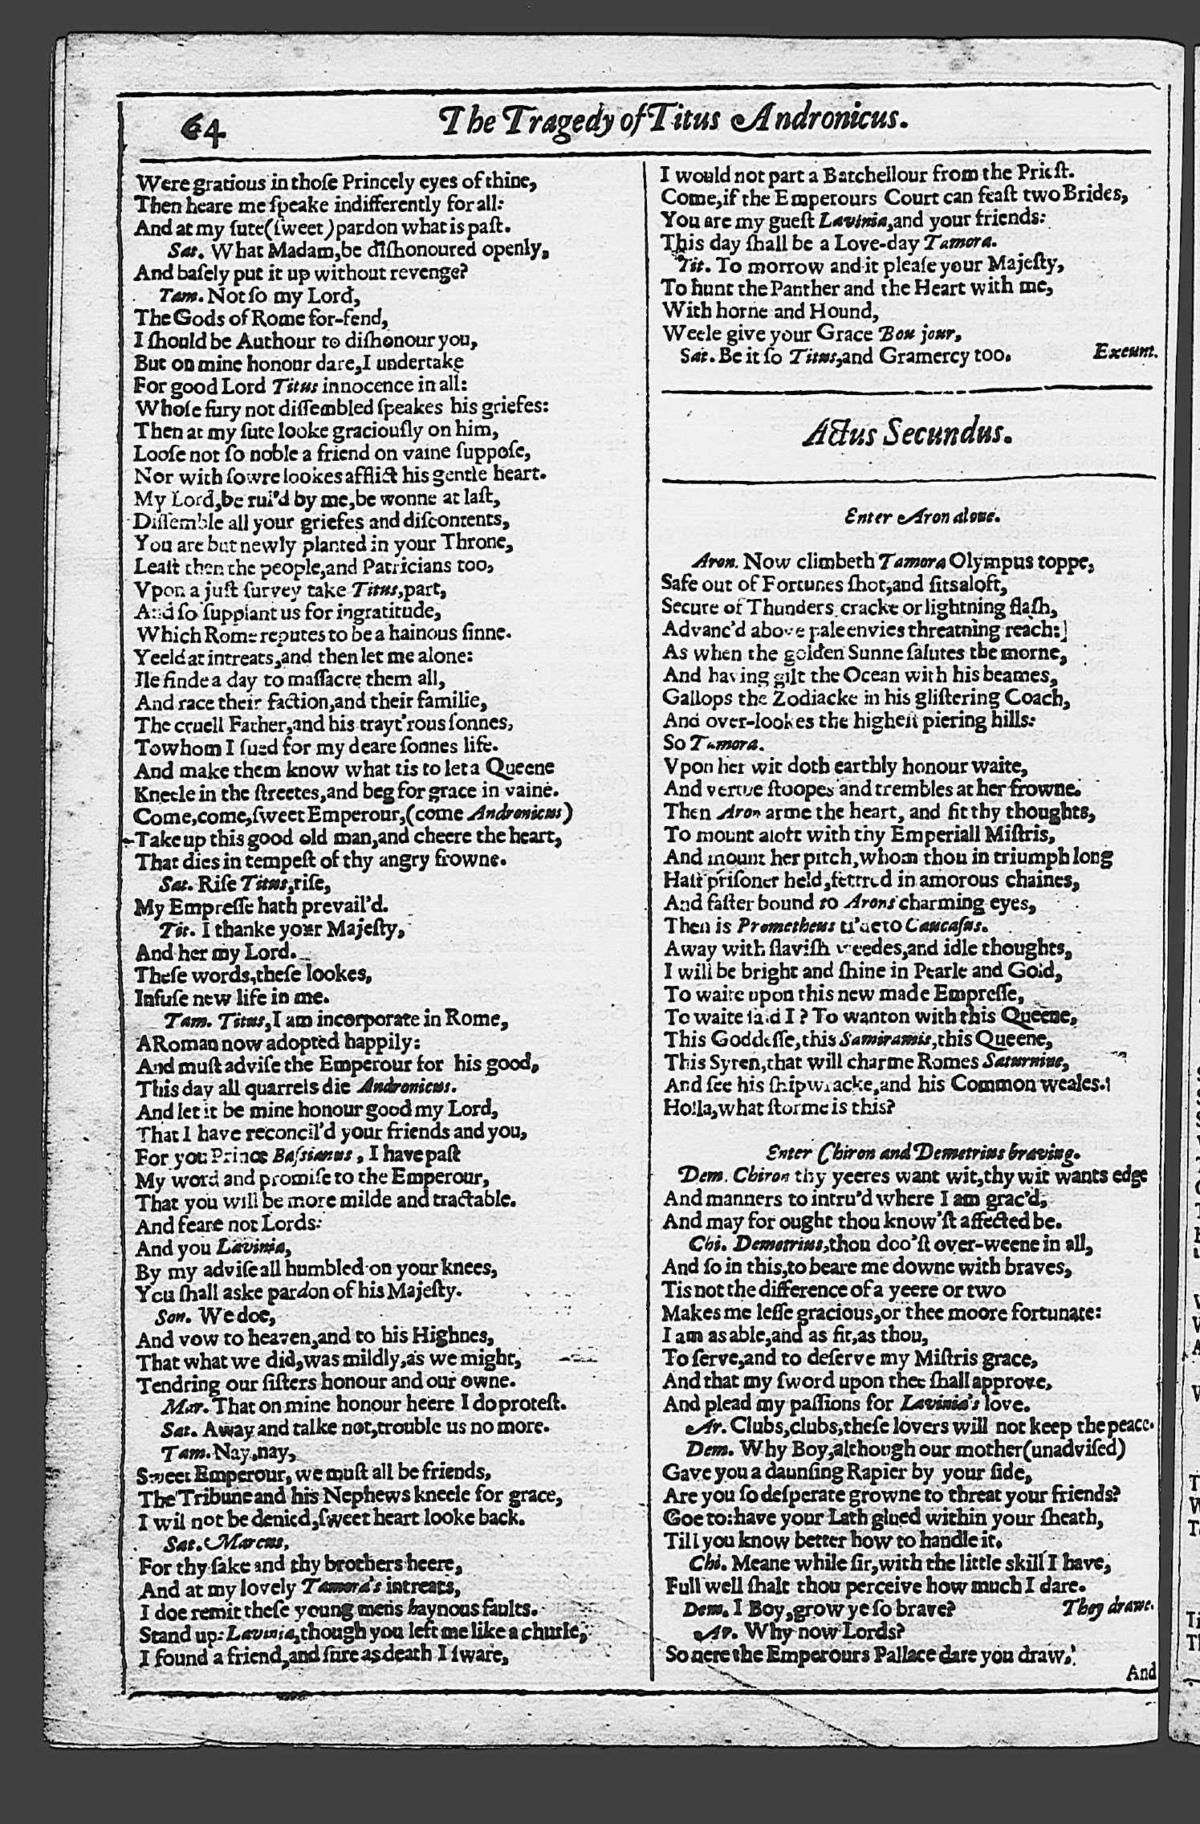 64
The Tragedy of Titus Andronicus.
Were gratious in thoſe Princely eyes of thine,
Then heare me ſpeake indifferently for all:
And at my ſute (ſweet) pardon what is paſt.
Sat. What Madam, be diſhonoured openly,
And baſely put it up without revenge?
Tam. Not ſo my Lord,
The Gods of Rome for-fend,
I ſhould be Authour to diſhonour you,
But on mine honour dare, I undertake
For good Lord Titus innocence in all:
Whoſe fury not diſſembled ſpeakes his griefes:
Then at my ſute looke graciouſly on him,
Looſe not ſo noble a friend on vaine ſuppoſe,
Nor with ſowre lookes afflict his gentle heart.
My Lord, be rul'd by me, be wonne at laſt,
Diſſemble all your griefes and diſcontents,
You are but newly planted in your Throne,
Leaſt then the people, and Patricians too,
Vpon a juſt ſurvey take Titus, part,
And ſo ſupplant us for ingratitude,
Which Rome reputes to be a hainous ſinne.
Yeeld at intreats, and then let me alone:
Ile finde a day to maſſacre them all,
And race their faction, and their familie,
The cruell Father, and his trayt'rous ſonnes,
To whom I ſued for my deare ſonnes life.
And make them know what tis to let a Queene
Kneele in the ſtreetes, and beg for grace in vaine.
Come, come, ſweet Emperour, (come Andronicus)
Take up this good old man, and cheere the heart,
That dies in tempeſt of thy angry frowne.
Sat. Riſe Titus, riſe,
My Empreſſe hath prevail'd.
Tit. I thanke your Majeſty,
And her my Lord.
Theſe words, theſe lookes,
Infuſe new life in me.
Tam. Titus, I am incorporate in Rome,
A Roman now adopted happily:
And muſt adviſe the Emperour for his good,
This day all quarrels die Andronicus.
And let it be mine honour good my Lord,
That I have reconcil'd your friends and you,
For you Prince Baſsianus, I have paſt
My word and promiſe to the Emperour,
That you will be more milde and tractable.
And feare not Lords:
And you Lavinia,
By my adviſe all humbled on your knees,
You ſhall aske pardon of his Majeſty.
Son. We doe,
And vow to heaven, and to his Highnes,
That what we did, was mildly, as we might,
Tendring our ſiſters honour and our owne.
Mar. That on mine honour heere I do proteſt.
Sat. Away and talke not, trouble us no more.
Tam. Nay, nay,
Sweet Emperour, we muſt all be friends,
The Tribune and his Nephews kneele for grace,
I wil not be denied, ſweet heart looke back.
Sat. Marcus,
For thy ſake and thy brothers heere,
And at my lovely Tamora's intreats,
I doe remit theſe young mens haynous faults.
Stand up: Lavinia, though you left me like a churle,
I found a friend, and ſure as death I ſware,
I would not part a Batchellour from the Prieſt.
Come, if the Emperours Court can feaſt two Brides,
You are my gueſt Lavinia, and your friends:
This day ſhall be a Love-day Tamora.
Tit. To morrow and it pleaſe your Majeſty,
To hunt the Panther and the Heart with me,
With horne and Hound,
Weele give your Grace Bon jour,
Sat. Be it ſo Titus, and Gramercy too. Exeunt.
Actus Secundus.
Enter Aron alone.
Aron. Now climbeth Tamora Olympus toppe,
Safe out of Fortunes ſhot, and ſits aloft,
Secure of Thunders cracke or lightning flaſh,
Advanc'd above pale envies threatning reach:
As when the golden Sunne ſalutes the morne,
And having gilt the Ocean with his beames,
Gallops the Zodiacke in his gliſtering Coach,
And over-lookes the higheſt piering hills:
So Tamora.
Vpon her wit doth earthly honour waite,
And vertue ſtoopes and trembles at her frowne.
Then Aron arme the heart, and fit thy thoughts,
To mount aloft with thy Emperiall Miſtris,
And mount her pitch, whom thou in triumph long
Haſt priſoner held, fettred in amorous chaines,
And faſter bound to Arons charming eyes,
Then is Prometheus ti'de to Caucaſus.
Away with ſlaviſh weedes, and idle thoughts,
I will be bright and ſhine in Pearle and Gold,
To waite upon this new made Empreſſe,
To waite ſaid I? To wanton with this Queene,
This Goddeſſe, this Samiramis, this Queene,
This Syren, that will charme Romes Saturnine,
And ſee his ſhipwracke, and his Common weales.
Holla, what ſtorme is this?
Enter Chiron and Demetrius braving.
Dem. Chiron thy yeeres want wit, thy wit wants edge
And manners to intru'd where I am grac'd,
And may for ought thou know'ſt affected be.
Chi. Demetrius, thou doo'ſt over-weene in all,
And ſo in this, to beare me downe with braves,
Tis not the difference of a yeere or two
Makes me leſſe gracious, or thee moore fortunate:
I am as able, and as fit, as thou,
To ſerve, and to deſerve my Miſtris grace,
And that my ſword upon thee ſhall approve,
And plead my paſſions for Lavinia's love.
Ar. Clubs, clubs, theſe lovers will not keep the peace.
Dem. Why Boy, although our mother (unadviſed)
Gave you a daunſing Rapier by your ſide,
Are you ſo deſperate growne to threat your friends?
Goe to: have your Lath glued within your ſheath,
Till you know better how to handle it.
Chi. Meane while ſir, with the little skill I have,
Full well ſhalt thou perceive how much I dare.
Dem. I Boy, grow ye ſo brave? They drawe.
Ar. Why now Lords?
So nere the Emperours Pallace dare you draw,
And